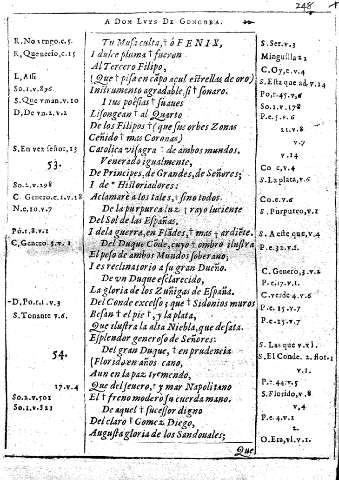 248
A DON LUYS DE GONGORA.
R. No vengo, c. 5. Tu Musa culta, † ò FENIX, S. Ser. v. 3
R. Quenecio, c. 15 I dulce pluma † fueron Minguilla 21
Al Tercero Filipo, C. Oy, c. v. 4
L, Assi (Que † pisa en capo açul estrellas de oro) S. Este que, ad. v. 14
So. 1. v. 896. Instrumento agradable, si † sonaro. Po, t. 45. v. 6
S. Que v man. v. 10 I tus poësias † suaues So. 1. v. 178
D, De vn. 2. v. 2 Lisongean † al Quarto P. e. 5. v. 6
De los Filipos († que sus orbes Zonas 21. v. 8
Ceñido † mas Coronas) v. 7
S. En vez señor, 13 Catolica visagra † de ambos mundos. v. 14
53. Venerado igualmente,
De Principes, de Grandes, de Señores; Co c, v. 4
So. 2. v. 298 I de † Historiadores: S. La plata, v. 6
C. Genero. e. 1. v. 18 Aclamarè a los tales, † sino todos.
N. e. 10. v. 7 De la purpurea luz † rayo luciente S. Purpureo, v. 1
Del Sol de las Españas.
Po, t. 8. v. 1 I de la guerra, en Flãdes, † mas † ardiẽte. S. A este que, v. 4
C, Genero. 5. v. 1 Del Duque Cõde, cuyo † ombro ilustra P. e. 32. v. f.
El peso de ambos Mundos soberano,
I es reclinatorio a su gran Dueño. C. Genero, 3. v. 2
De vn Duque esclarecido, P. e. 17. v. 1.
La gloria de los Zuñigas de España. C. verde 4. v. 6
-D, Po. t. 1. v. 3 Del Conde excelso; que † Sidonios muros P. e. 15. v. 7
S. Tonante v. 6. Besan † el pie †, y la plata, P. e. 15. v. 7
Que ilustra la alta Niebla, que desata.
Esplendor generoso de Señores: S. Las que v. 1.
54. Del gran Duque, † en prudencia S. El Conde. 2. flot. 1
(Florido en años) cano, v. 1.
Aun en la paz tremendo, P. e. 44. v. 5
17. v. 4 Que del seuero, † y mar Napolitano S. Florido, v. 8
So. 2. v. 501 El † freno modero su cuerda mano. v. 4
So. 2. v. 521 De aquel † sucessor digno P. e. 4. v. 1
Del claro † Gomez Diego, 2.
Augusta gloria de los Sandouales; O. Era, vl. v. 1.
Que